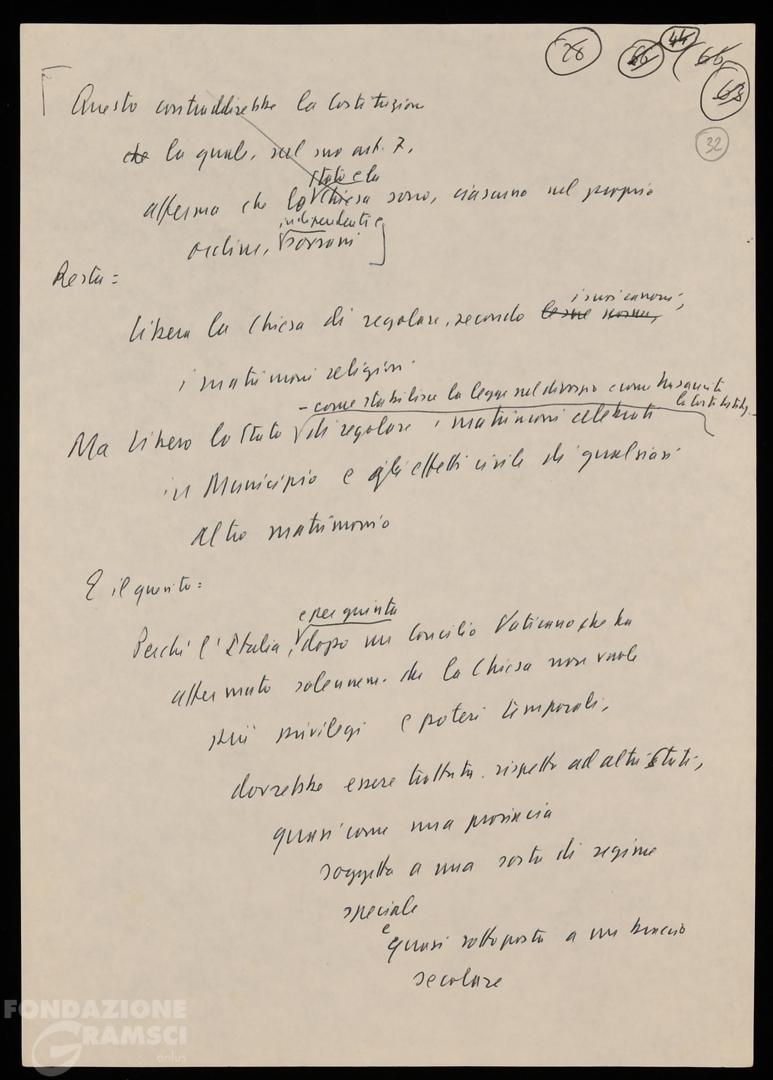 28 66 44 66 68
32
Questo contraddirebbe la Costituzione
che la quale, nel suo art. 7,
Stato e la
afferma che lo Chiesa sono, ciascuno nel proprio
indipendenti e
ordine, sovrani
Resta =
i suoi canoni,
libera la Chiesa di regolare, secondo le sue norme,
i matrimoni religiosi.
- come stabilisce la legge sul divorzio e come
Ma libero lo Stato di regolare i matrimoni celebrati
in Municipio e gli effetti civile di qualsiasi
altro matrimonio
E il quinto =
e per quinto
Perché l'Italia, dopo un Concilio Vaticano che ha
affermato solennem. che la Chiesa non vuole
più privilegi e poteri temporali,
dovrebbe essere trattata. rispetto ad altri Stati,
quasi come una provincia
soggetta a una sorta di regime
speciale
e
quasi sottoposta a un braccio
secolare
FONDAZIONE
GRAMSCI
onlus